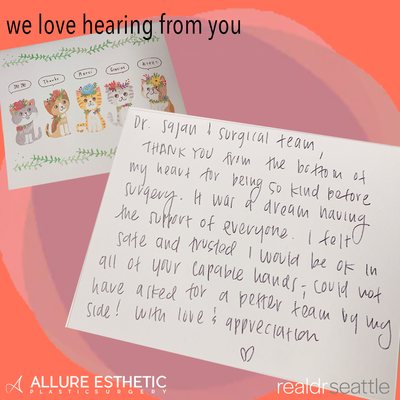 we love hearing from you
Thanks
Merci
Dr. Sajan & surgical team,
THANK YOU from the bottom of
my heart for being so kind before
surgery. It was a dream having
the support of everyone. I felt
safe and trusted I would be ok in
all of your capable hands; could not
have asked for a better team by my
side! With love & appreciation
♡
ALLURE ESTHETIC
PLASTICSURGERY
realdrseattle